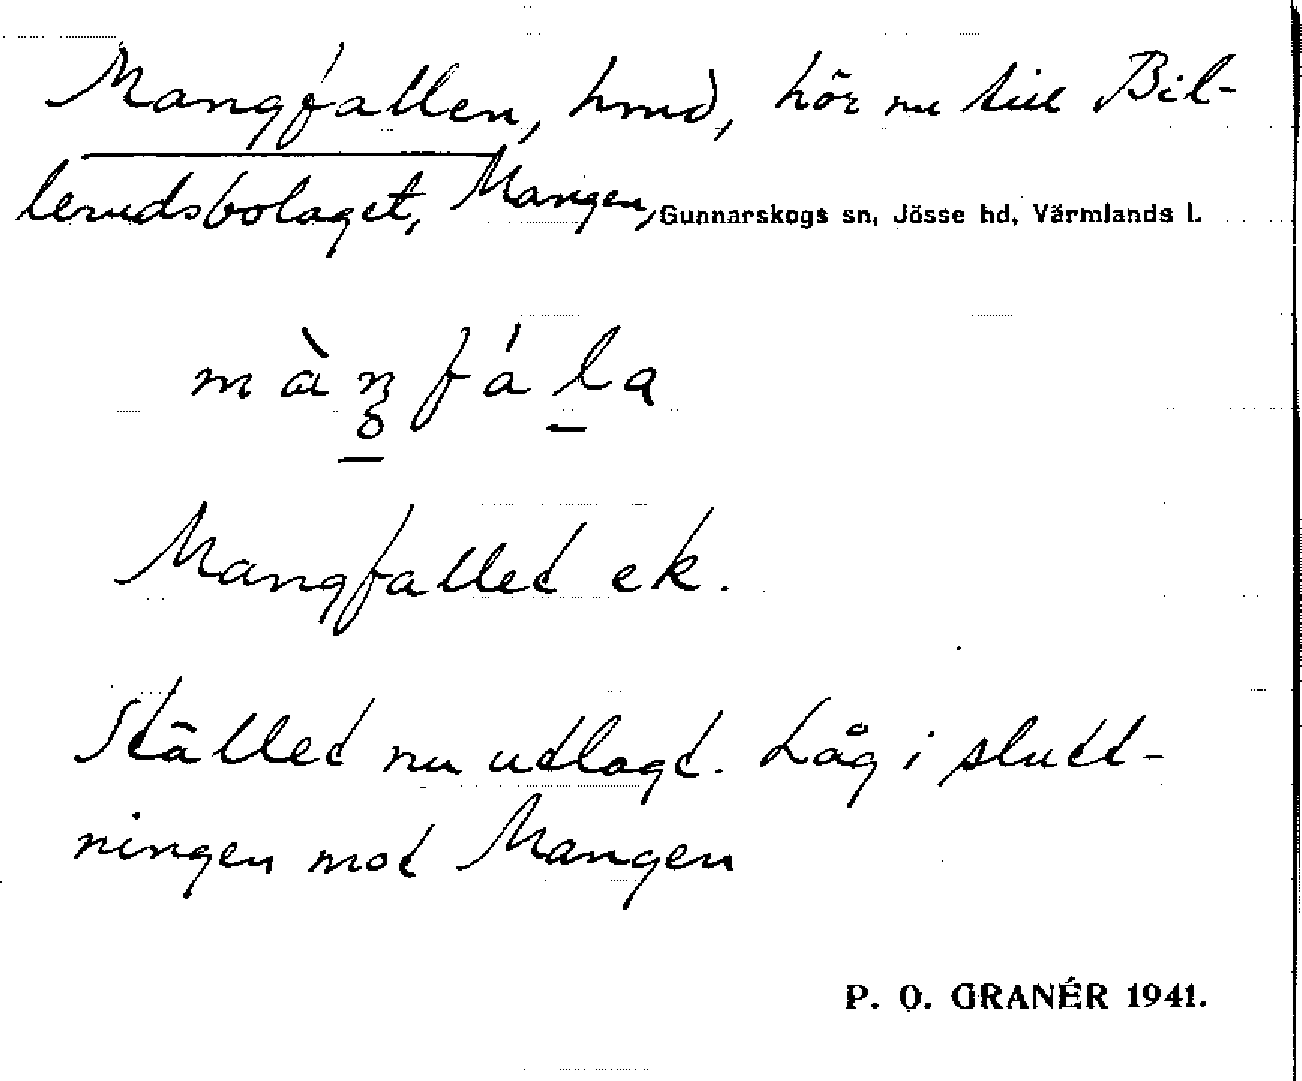 Mangfallen, hmd, hör nu till Bil-
lerudsbolaget, Mangen, Gunnarskogs sn, Jösse hd, Värmlands l.
Mangfallet ek.
Stället nu utlagt. Låg i slutt-
ningen mot Mangen
P. O. GRANÉR 1941.